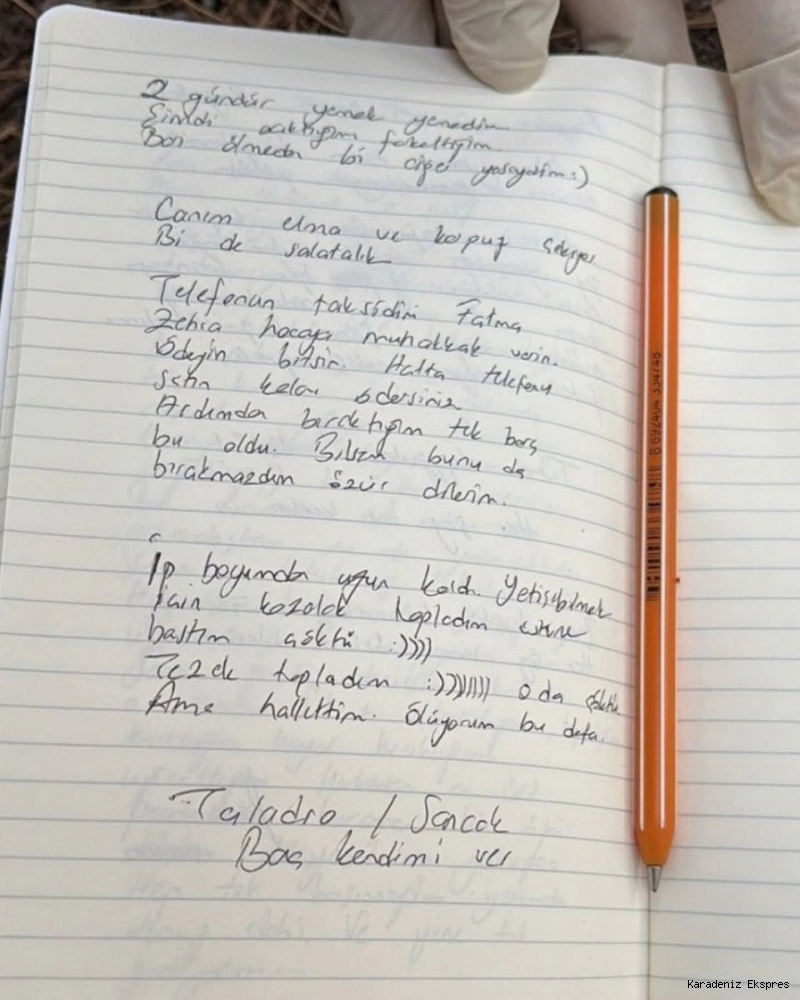 2 gündür yemek yemedim
Şimdi acıktığımı farkettim
Bari ölmeden bi çiğer yeseydim :)
Canım elma ve karpuz çekiyor
Bi de salatalık
Telefonun taksidini Fatma
Zehra hocaya muhakkak verin.
Ödeyin bitsin. Hatta telefonu
satın kalanı ödersiniz
Ardımda bıraktığım tek borç
bu oldu. Bilsem bunu da
bırakmazdım özür dilerim.
İp boyumdan uzun kaldı. Yetişebilmek
için kozalak topladım üstüne
bastım çöktü :))))
Tezek topladım :))))))))) o da çöktü
Ama hallettim. Ölüyorum bu defa.
Taladro / Sancak
Baş kendimi ver
8 692404 334748
Karadeniz Ekspres